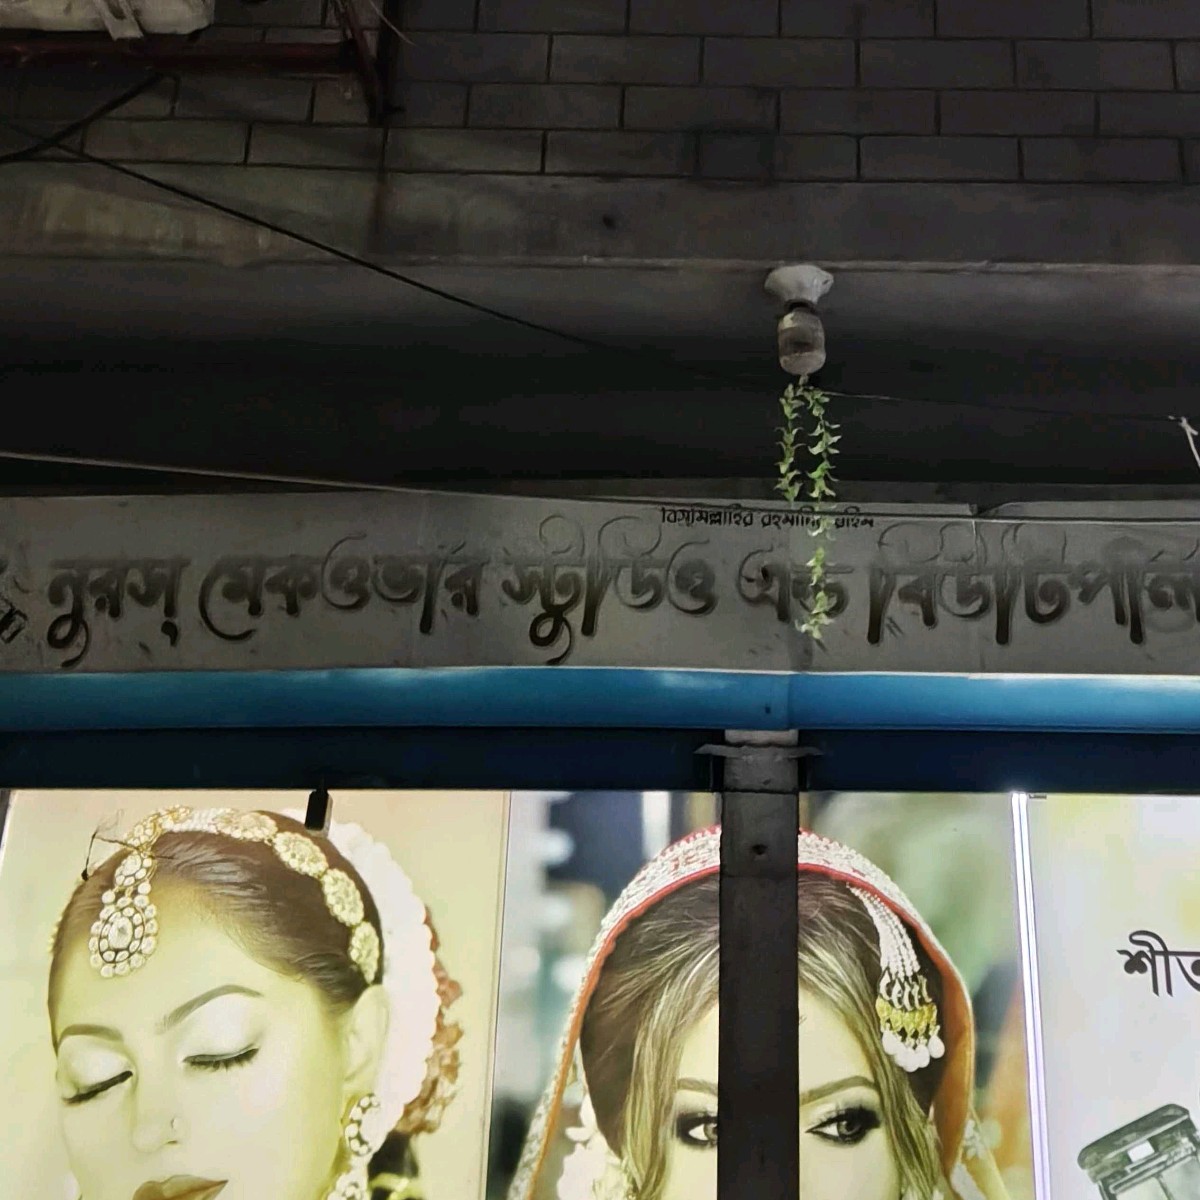 বিসমিল্লাহির রহমানির রাহিম
নুরস্ মেকওভার স্টুডিও এন্ড বিউটিপার্লার
শীত